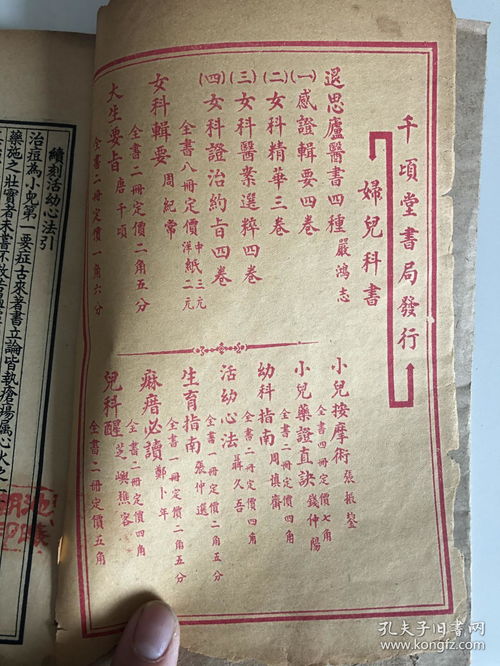 千頃堂書局發行
婦兒科書
退思廬醫書四種 嚴鴻志
(一)感證輯要四卷
(二)女科精華三卷
(三)女科醫案選粹四卷
(四)女科證治約旨四卷
全書八冊定價 中紙三元 洋紙二元
女科輯要 周紀常
全書二冊定價二角五分
大生要旨 唐千頃
全書二冊定價一角六分
小兒按摩術 張振鋆
全書四冊定價七角
小兒藥證直訣 錢仲陽
全書二冊定價四角
幼科指南 周慎齋
全書二冊定價四角
活幼心法 聶久吾
全書一冊定價二角五分
生育指南 張仲遠
全書一冊定價二角五分
麻瘄必讀 鄭卜年
全書二冊定價四角
兒科醒 芝嶼樵客
全書二冊定價五角
續刻活幼心法引
治痘為小兒第一要症古來著書立論皆執瘡瘍屬心火之
藥施之壯實者未嘗不效
孔夫子旧书网
www.kongfz.com